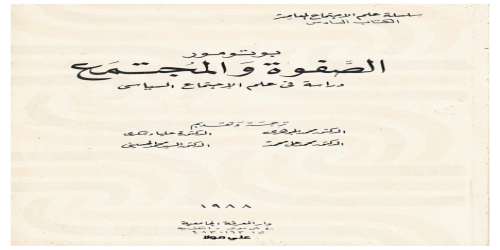 سلسلة علم الاجتماع المعاصر
الكتاب السادس
بوتومور
الصفوة والمجتمع
دراسة في علم الاجتماع السياسى
ترجمة وتقديم
الدكتور محمد الجوهرى الدكتورة علياء شكرى
الدكتور محمد على محمد الدكتور السيد محمد الحسينى
١٩٨٨
دار المعرفة الجامعية
على مولا